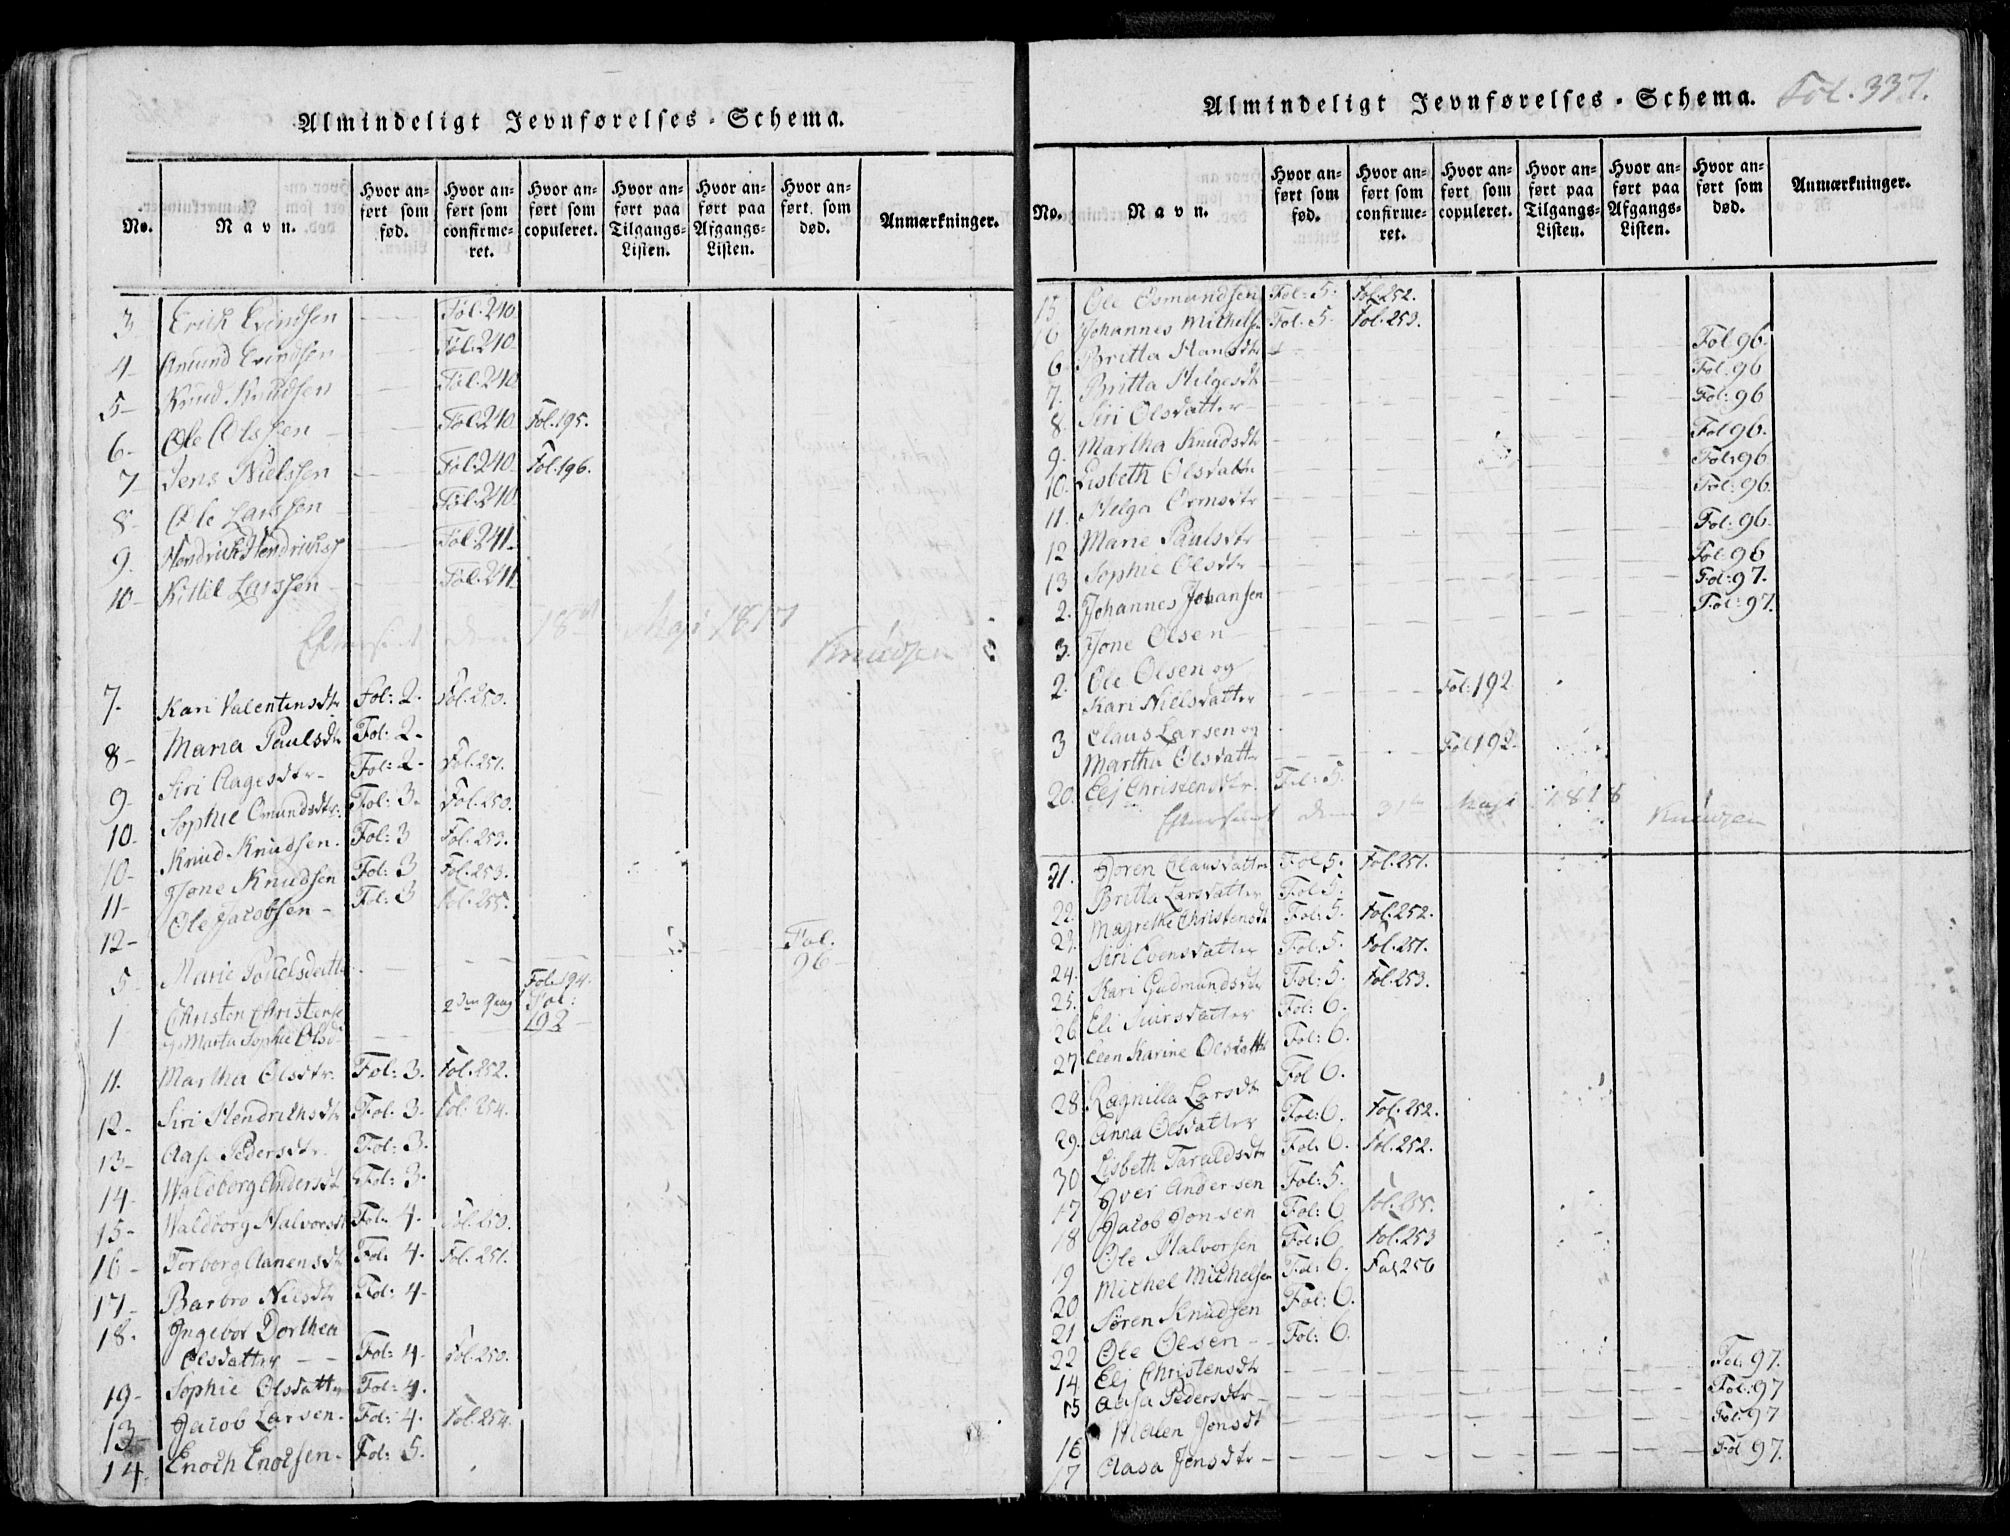 Almindeligt Jevnførelses-Schema.
No. Navn. Hvor anført som fød. Hvor anført som confirmeret. Hvor anført som copuleret. Hvor anført paa Tilgangs-Listen. Hvor anført paa Afgangs-Listen. Hvor anført som død. Anmærkninger.
3 Erich Evindsen Fol. 240.
4 Amund Evindsen Fol. 240
5 Knud Knudsen Fol. 240
6 Ole Olssen Fol. 240 Fol. 195.
7 Jens Nielssen Fol. 240 Fol. 196.
8 Ole Larssen Fol. 240
9. Hendrich Hendrichss Fol. 241.
10 Kittil Larssen Fol. 241
Efterseet den 18de Maji 1817 Knudsen
7. Kari Valentinsdtr Fol: 2. Fol. 250.
8 Maria Paulsdtr Fol: 2.
9 Siri Aagesdtr Fol: 2 Fol. 251.
10 Sophie Omundsdtr: Fol: 3. Fol. 250.
10 Knud Knudsen. Fol: 3 Fol. 253.
11 Jone Knudsen Fol: 3 Fol. 253.
12 Ole Jacobsen Fol: 3 Fol. 255.
5 Marie Poulsdatter Fol. 96
1 Christen Christense 2den Gang Fol. 194. Fol: 192
og Marta Sophie Olsd
11. Martha Olsdtr. Fol: 3. Fol. 252.
12 Siri Hendrichsdtr Fol. 3. Fol. 254.
13 Aase Pedersdtr Fol: 3.
14 Waldborg Andersdt Fol: 3.
15 Waldborg Halvorsdt Fol. 4. Fol. 250.
16 Torborg Aanensdt Fol: 4. Fol. 251.
17 Barbro Nilsdtr Fol: 4
18. Ingebor Dorthea
Olsdatter Fol: 4 Fol. 250.
19 Sophie Olsdatter Fol: 4.
13 Jacob Larsen. Fol: 4. Fol. 254.
14. Enoch Enocsen. Fol: 5.
Almindeligt Jevnførelses-Schema. Fol. 337.
No. Navn. Hvor anført som fød. Hvor anført som confirmeret. Hvor anført som copuleret. Hvor anført paa Tilgangs-Listen. Hvor anført paa Afgangs-Listen. Hvor anført som død. Anmærkninger.
15 Ole Osmundsen Fol: 5. Fol. 252.
16 Johannes Michelse Fol. 5. Fol. 253.
6 Britta Hansdtr Fol 96.
7. Britta Helgesdtr Fol. 96
8 Siri Olsdatter Fol: 96
9. Martha Knudsdtr Fol 96.
10. Lisbeth Olsdatter Fol: 96
11. Helga Ormsdtr Fol: 96.
12 Marie Paulsdtr Fol: 96.
13 Sophie Olsdtr Fol 96
2. Johannes Johansen Fol: 97.
3. Jone Olsen Fol: 97.
2. Ole Olsen og
Kari Nielsdatter Fol: 192
3 Claus Larsen og
Martha Olsdatter Fol 192.
20. Elj Christensdtr. Fol: 5.
Efterseet den 31te Maji 1818 Knudsen
21. Doren Clausdatter Fol 5. Fol. 251.
22. Britta Larsdatter Fol 5.
23. Magrethe Christensdt Fol: 5. Fol. 252.
24. Siri Evensdatter Fol: 5. Fol. 251.
25. Kari Gudmundsdtr Fol: 5. Fol. 253.
26 Eli Siursdatter Fol: 6.
27 Elen Karine Olsdatter Fol: 6.
28 Ragnilla Larsdtr Fol 6.
29. Anna Olsdatter Fol: 6. Fol. 252.
30 Lisbeth Taraldsdtr Fol: 6. Fol. 252.
17 Iver Andersen Fol: 5.
18 Jacob Jonsen Fol: 6 Fol. 255.
19 Ole Halvorsen Fol: 6 Fol. 253
20 Michel Michelsen Fol: 6. Fol 256
21 Sören Knudsen Fol: 6.
22 Ole Olsen Fol: 6.
14 Elj Christensdtr Fol: 97.
15 Aasa Pedersdtr Fol: 97
16 Malen Jonsdt Fol: 97
17 Aasa Jensdtr Fol 97.